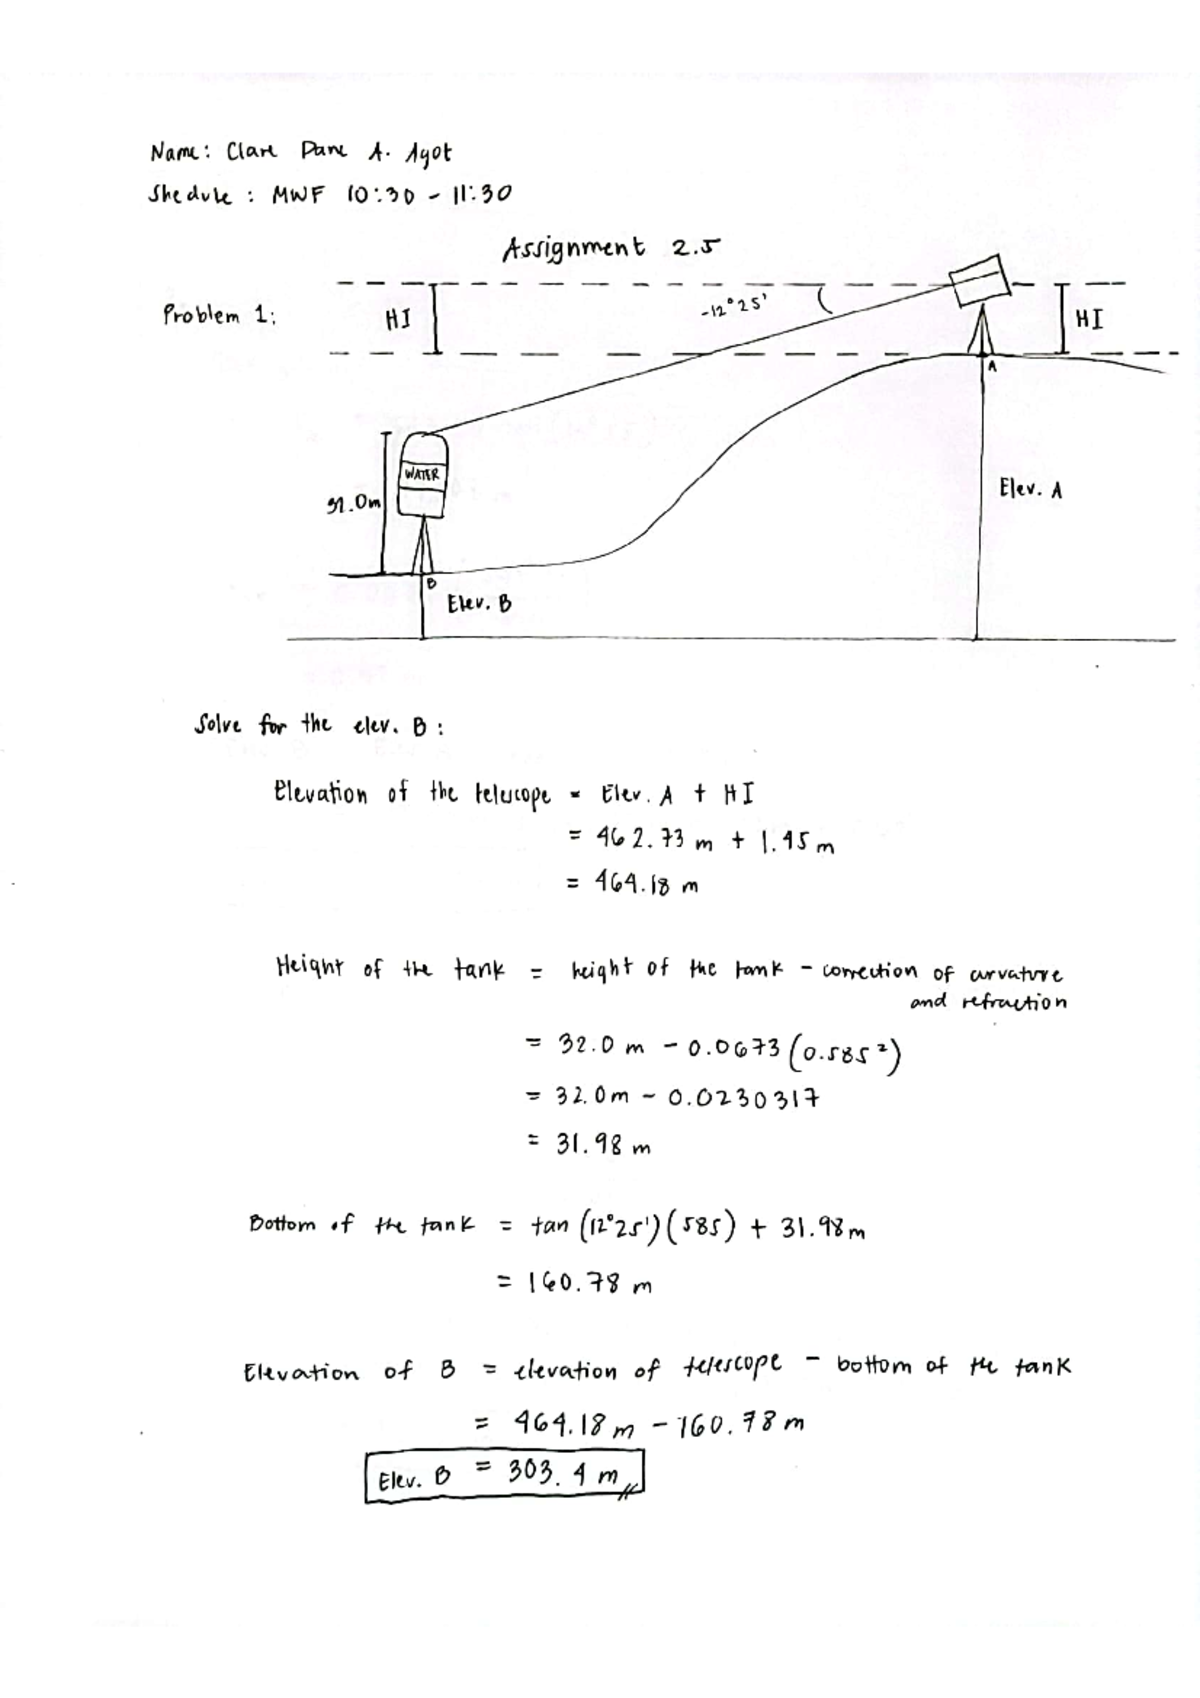 Name: Clare Dane A. Ayot
Shedule : MWF 10:30 - 11:30
Assignment 2.5
Problem 1:
HI
-12°25'
HI
A
WATER
32.0m
Elev. A
B
Elev. B
Solve for the elev. B :
Elevation of the telescope = Elev. A + HI
= 462.73 m + 1.45 m
= 464.18 m
Height of the tank = height of the tank - correction of curvature
and refraction
= 32.0 m - 0.0673 (0.585²)
= 32.0m - 0.0230317
= 31.98 m
Bottom of the tank = tan (12°25') (585) + 31.98m
= 160.78 m
Elevation of B = elevation of telescope - bottom of the tank
= 464.18 m - 160.78 m
Elev. B = 303.4 m